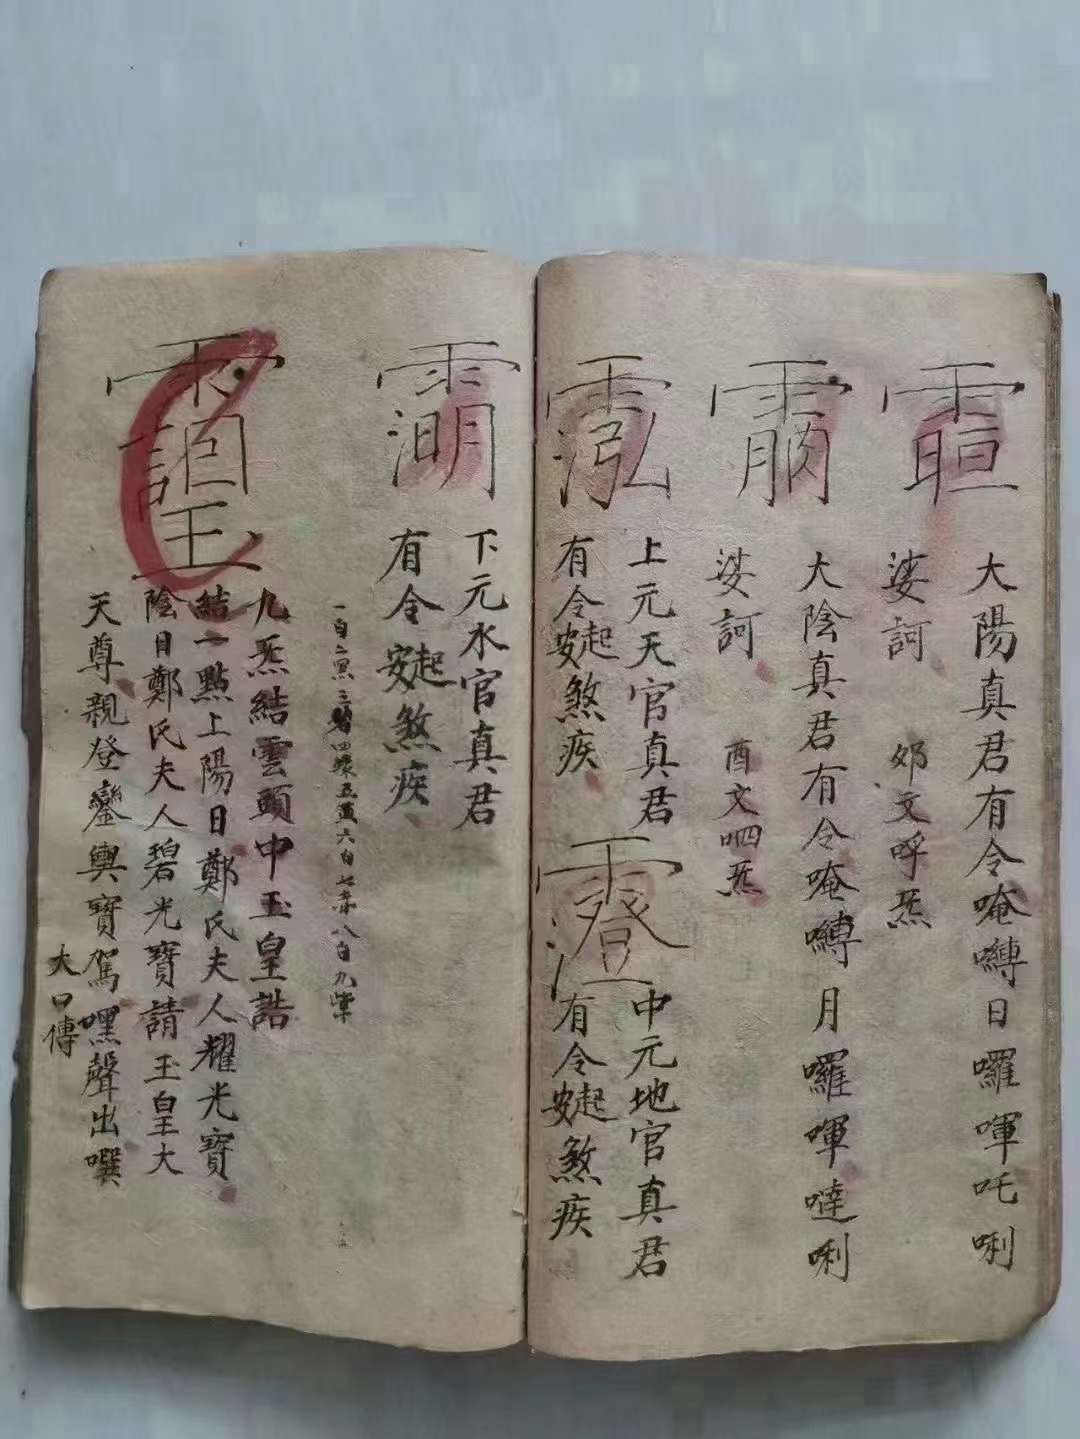 大陽真君有令唵嚩日囉㖮吒唎
娑訶
文呼炁
大陰真君有令唵嚩月囉㖮噠唎
娑訶
酉文呬炁
上元天官真君
有令
起煞
中元地官真君
有令
起煞
下元水官真君
有令
起煞
一白二黑三碧四綠五黃六白七赤八白九紫
九炁結雲頭中玉皇誥
結一點上陽日鄭氏夫人耀光寶
陰日鄭氏夫人碧光寶請玉皇大
天尊親登鑾輿寶駕嘿聲出噀
大口傳